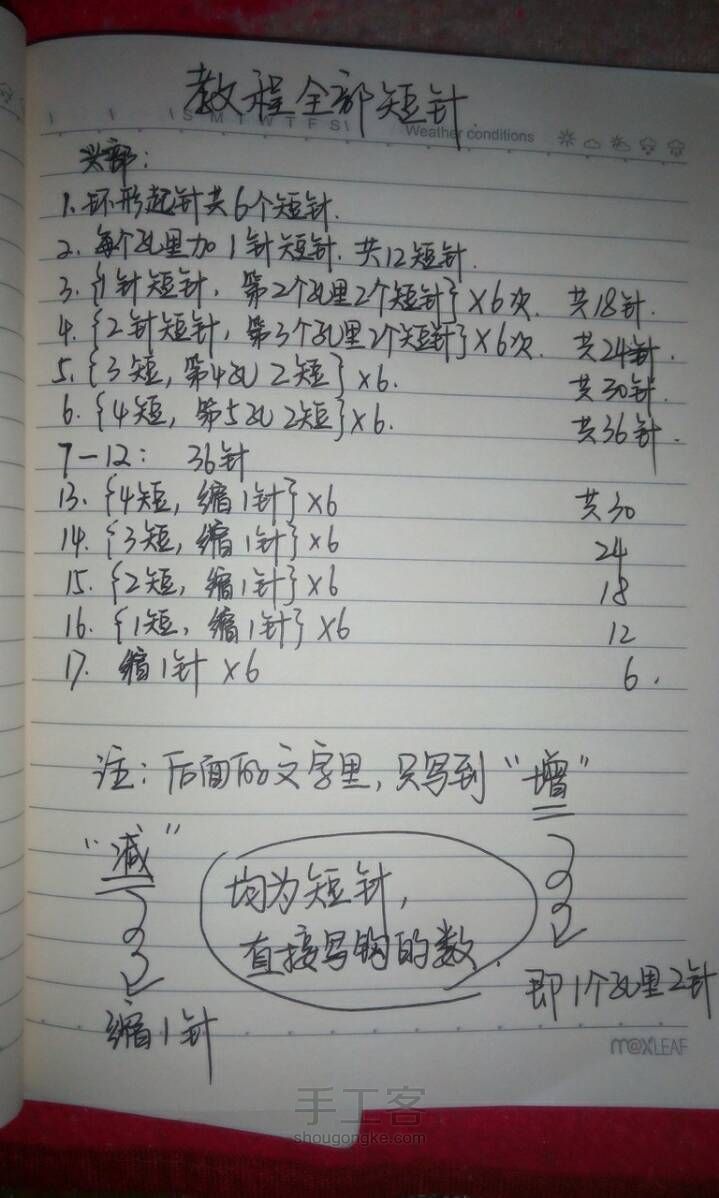 教程全部短针.
S M T W T F S
Weather conditions
头部:
1. 环形起针共6个短针.
2. 每个孔里加1针短针. 共12短针.
3. {1针短针, 第2个孔里2个短针}×6次. 共18针.
4. {2针短针, 第3个孔里2个短针}×6次. 共24针.
5. {3短, 第4孔2短}×6. 共30针.
6. {4短, 第5孔2短}×6. 共36针.
7-12: 36针
13. {4短, 缩1针}×6 共30
14. {3短, 缩1针}×6 24
15. {2短, 缩1针}×6 18
16. {1短, 缩1针}×6 12
17. 缩1针×6 6.
注: 后面的文字里, 只写到“增”
“减”
均为短针,
直接写钩的数.
即1个孔里2针
缩1针
m@XLEAF
手工客
shougongke.com